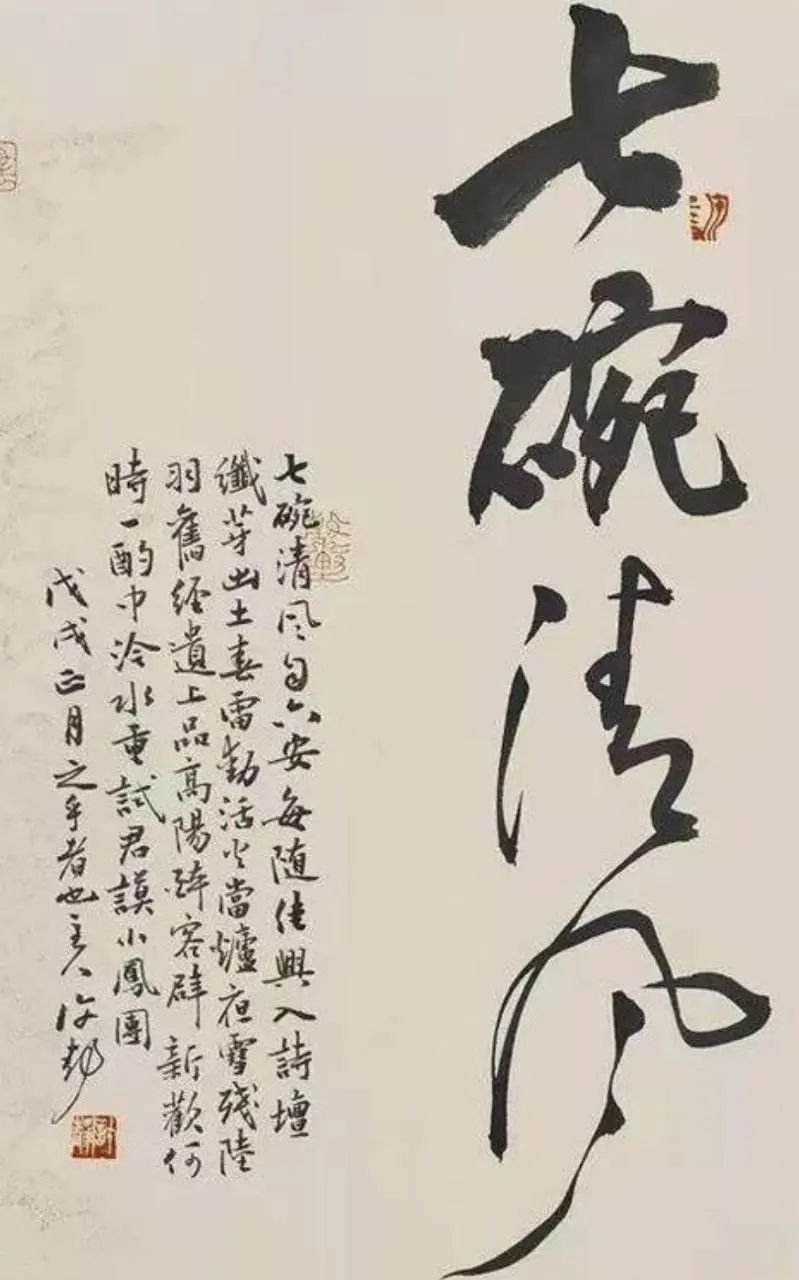 七碗清风
七碗清风自六安每随佳興入詩壇
纖芽出土春雷動活火當爐夜雪残陸
羽舊经遺上品高陽醉客辟新歡何
時一酌中泠水重試君謨小鳳團
戊戌正月之乎者也主人许静